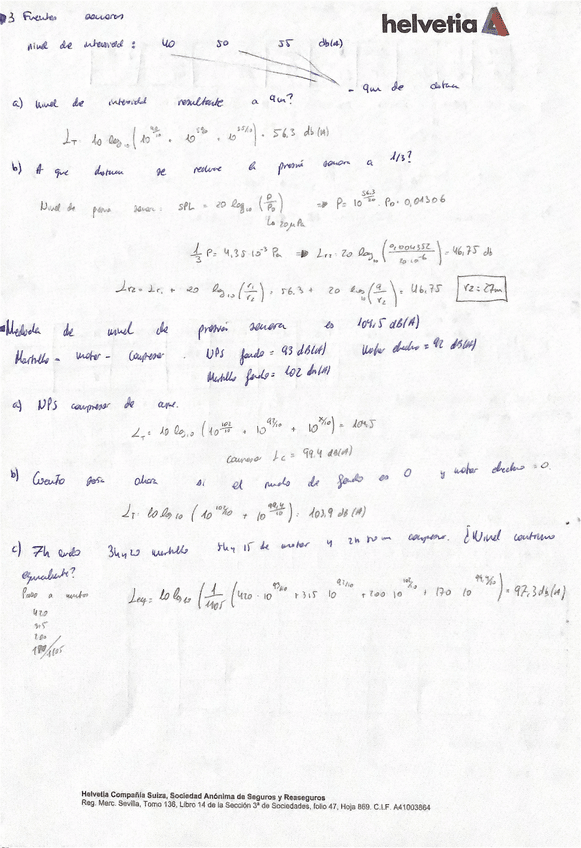 3 Fuentes sonoras
helvetia
nivel de intensidad: 40 50 55 db(A)
- 9m de distan
a) nivel de intensidad resultante a 9m?
L_T = 10 log₁₀ (10^(40/10) + 10^(50/10) + 10^(55/10)) = 56.3 db(A)
b) A que distancia se reduce la presión sonora a 1/3?
Nivel de presión sonora: SPL = 20 log₁₀ (P/P₀) ⇒ P = 10^(56.3/20) · P₀ = 0,01306
↳ 20 μPa
1/3 P = 4.35·10⁻³ Pa ⇒ L_r2 = 20 log₁₀ (0,004352/20·10⁻⁶) = 46,75 db
L_r2 = L_r1 + 20 log₁₀ (r₁/r₂) = 56.3 + 20 log₁₀ (9/r₂) = 46,75 r₂ = 27m
Medida de nivel de presión sonora es 104.5 dB(A)
Martillo - motor - compresor. NPS fondo = 93 dB(A) Motor electrico = 92 dB(A)
Martillo fondo = 102 db(A)
a) NPS compresor de aire.
L_T = 10 log₁₀ (10^(102/10) + 10^(93/10) + 10^(x/10)) = 104.5
compresor L_C = 99.4 db(A)
b) Cuanto sera ahora si el ruido de fondo es 0 y motor electrico = 0.
L_T = 10 log₁₀ (10^(102/10) + 10^(99,4/10)) = 103,9 db(A)
c) 7h ruido 3h y 20 martillo 5h y 15 de motor y 2h 50m compresor. ¿Nivel continuo
equivalente?
Paso a minutos
L_eq = 10 log₁₀ (1/1105 (420 · 10^(93/10) + 315 10^(92/10) + 200 10^(102/10) + 170 10^(99,4/10)) = 97,3 db(A)
420
315
200
180/1105
Helvetia Compañía Suiza, Sociedad Anónima de Seguros y Reaseguros
Reg. Merc. Sevilla, Tomo 136, Libro 14 de la Sección 3ª de Sociedades, folio 47, Hoja 869. C.I.F. A41003864